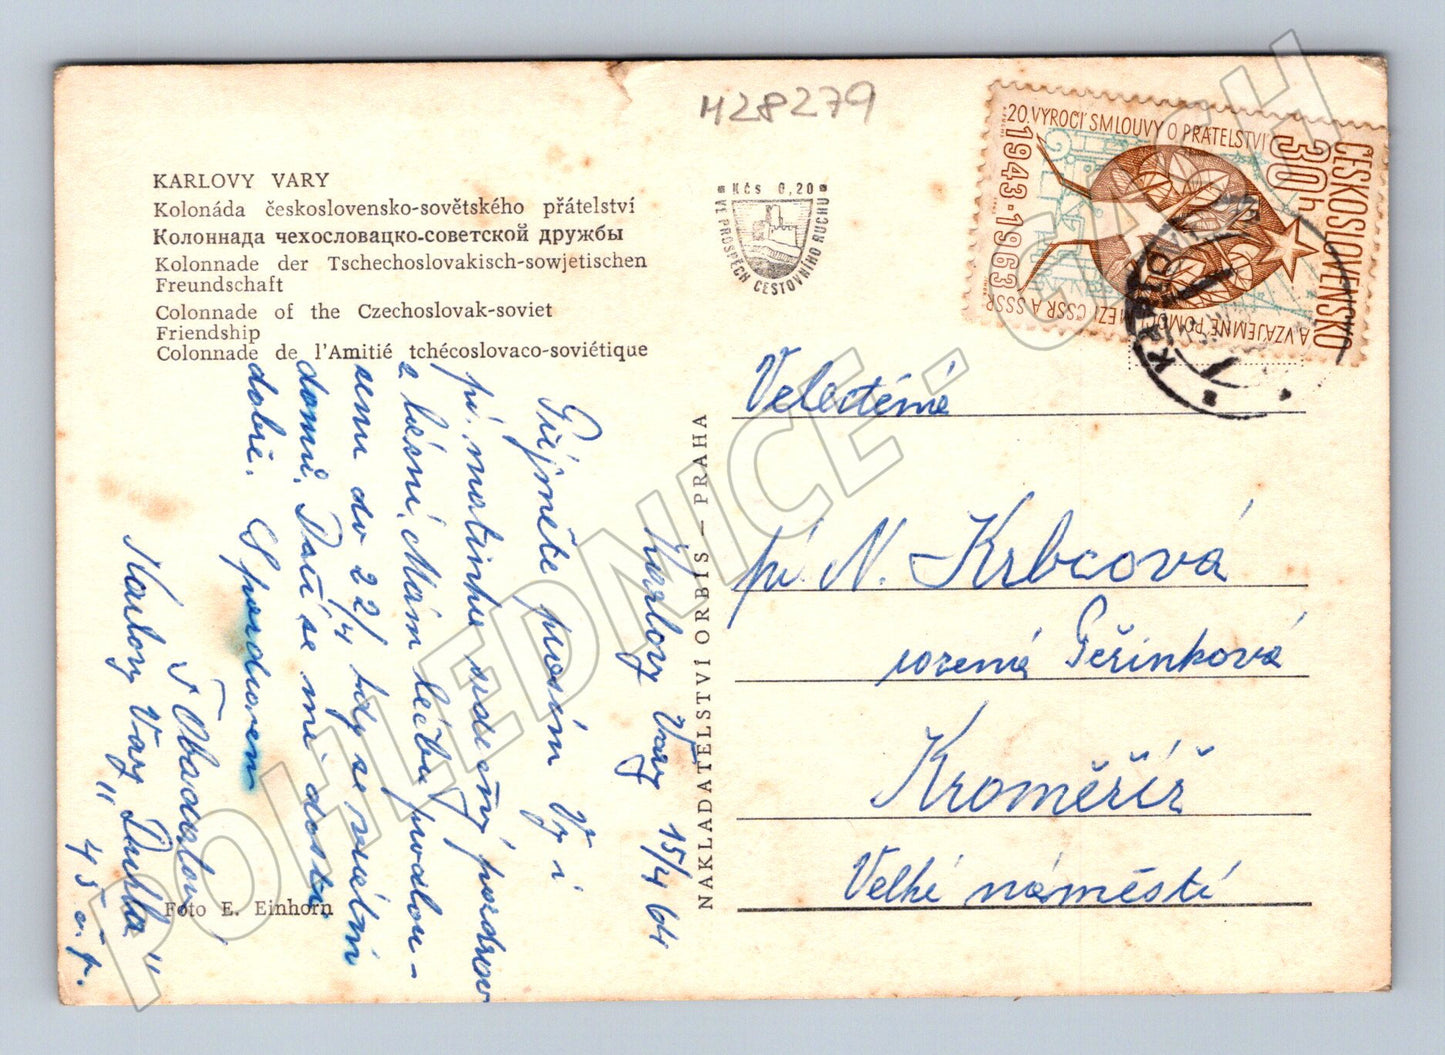 H28279
KARLOVY VARY
Kolonáda československo-sovětského přátelství
Колоннада чехословацко-советской дружбы
Kolonnade der Tschechoslovakisch-sowjetischen
Freundschaft
Colonnade of the Czechoslovak-soviet
Friendship
Colonnade de l'Amitié tchécoslovaco-soviétique
Kčs 0,20
VE PROSPĚCH CESTOVNÍHO RUCHU
ČESKOSLOVENSKO
30h
20. VÝROČÍ SMLOUVY O PŘÁTELSTVÍ
A VZÁJEMNÉ POMOCI MEZI ČSSR A SSSR
1943-1963
Karlovy Vary 15/4 64
Přijměte prosím Vy i
pí. matinku srdečný pozdrav
z lázní. Mám léčbu prodlou-
ženu do 22/4 kdy se vrátím
domů. Daří se mi dosti
dobře. S pozdravem
Karlovy Vary "Dukla"
45 č. p.
NAKLADATELSTVÍ ORBIS — PRAHA
Foto E. Einhorn
Velectěná
pí. N. Krbcová
rozená Peřinková
Kroměříž
Velké náměstí
POHLEDNICE - CACH